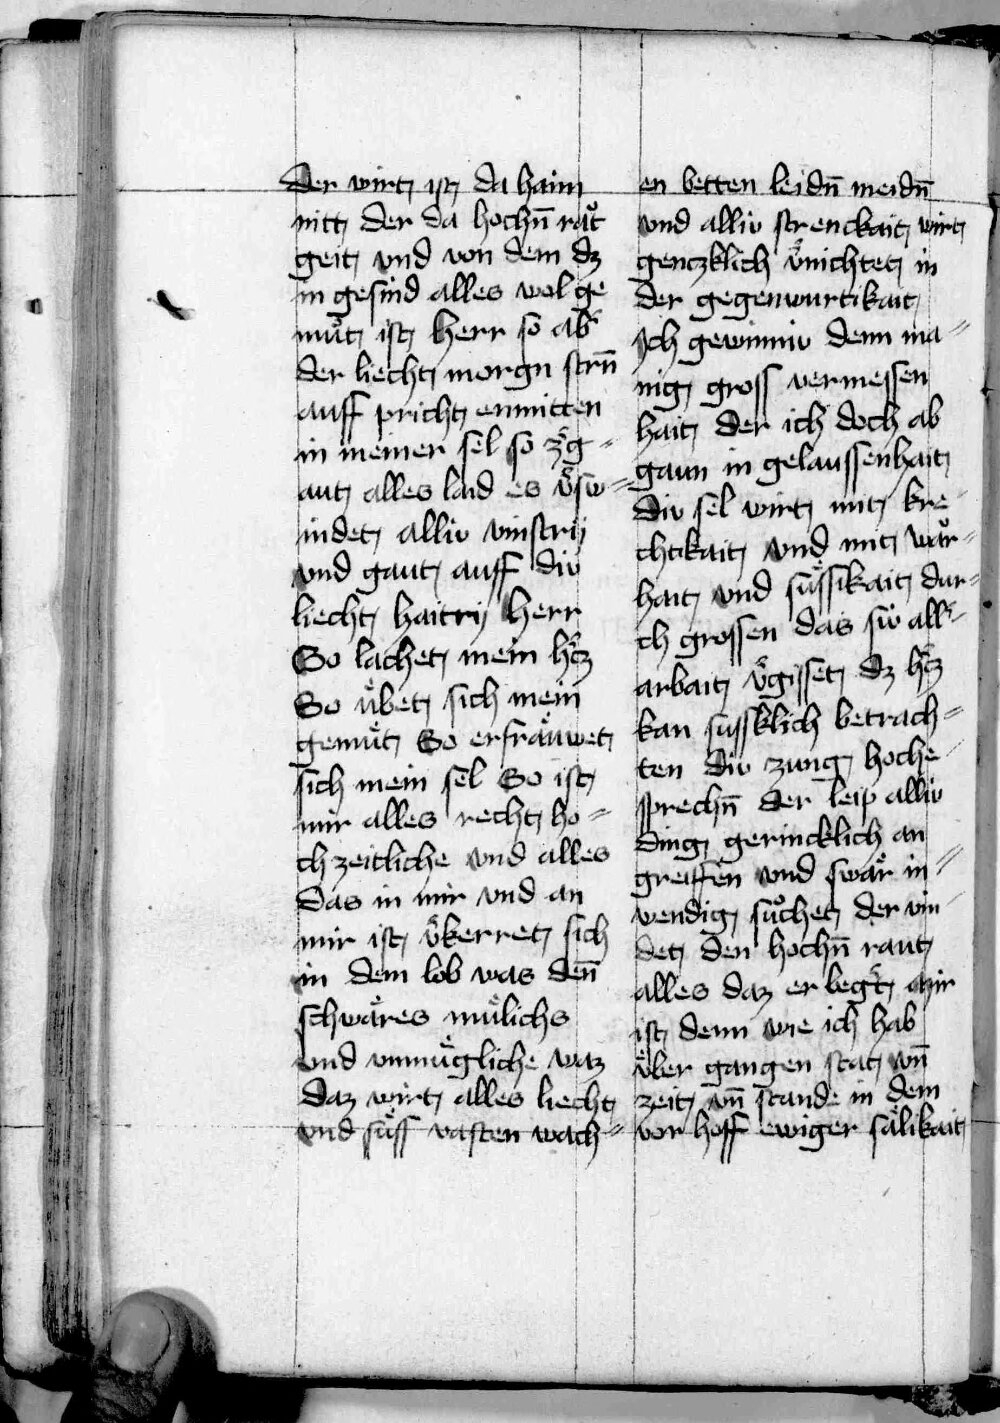 der wirt ist da haim
nitt der da hochn̄ raͤt
geit vnd von dem dz
in gesind alles wol ge
muͤt ist herr so ab̛
der liecht morgn stern̄
auff pricht enmitten
in meiner sel so zͤg⸗
aut alles laid es v̛sw⸗
indet alliv vinstrij
vnd gaut auff div
liecht haitrij herr
So lachet mein hc̛z
So uͤbet sich mein
gemuͤt So erfraͤuwet
sich mein sel So ist
mir alles recht ho⸗
ch zeitliche vnd alles
das in mir vnd an
mir ist v̛kerret sich
in dem lob was den̄
schwaͤres muͤlichs
vnd vnmuͤgliche waz
daz wirt alles liecht
vnd suͤss vasten wach⸗
en betten leidn̄ meidn̄
vnd alliv strenckait wirt
genczklich v̛nichtet in
der gegenwurtikait
Ich gewinniv denn ma⸗
nig gross vermessen
hait der ich doch ab
gaun in gelaussenhait
div sel wirt mit kre⸗
chtikait vnd mit waͤr⸗
hait vnd suͤssikait dur⸗
ch grossen das siv all⸗
arbait v̛gisset dz hc̛z
kan sussklich betrach⸗
ten div zung hoche⸗
sprechn̄ der leip alliv
ding gerincklich an
greiffen vnd swaͤr in⸗
wendig suͦchet der vin⸗
det den hochn̄ raut
alles daz er beg̛t mir
ist denn wie ich hab
uͤber gangen stat vn̄
zeit vn̄ stande in dem
vor hoff ewiger saͤlikait